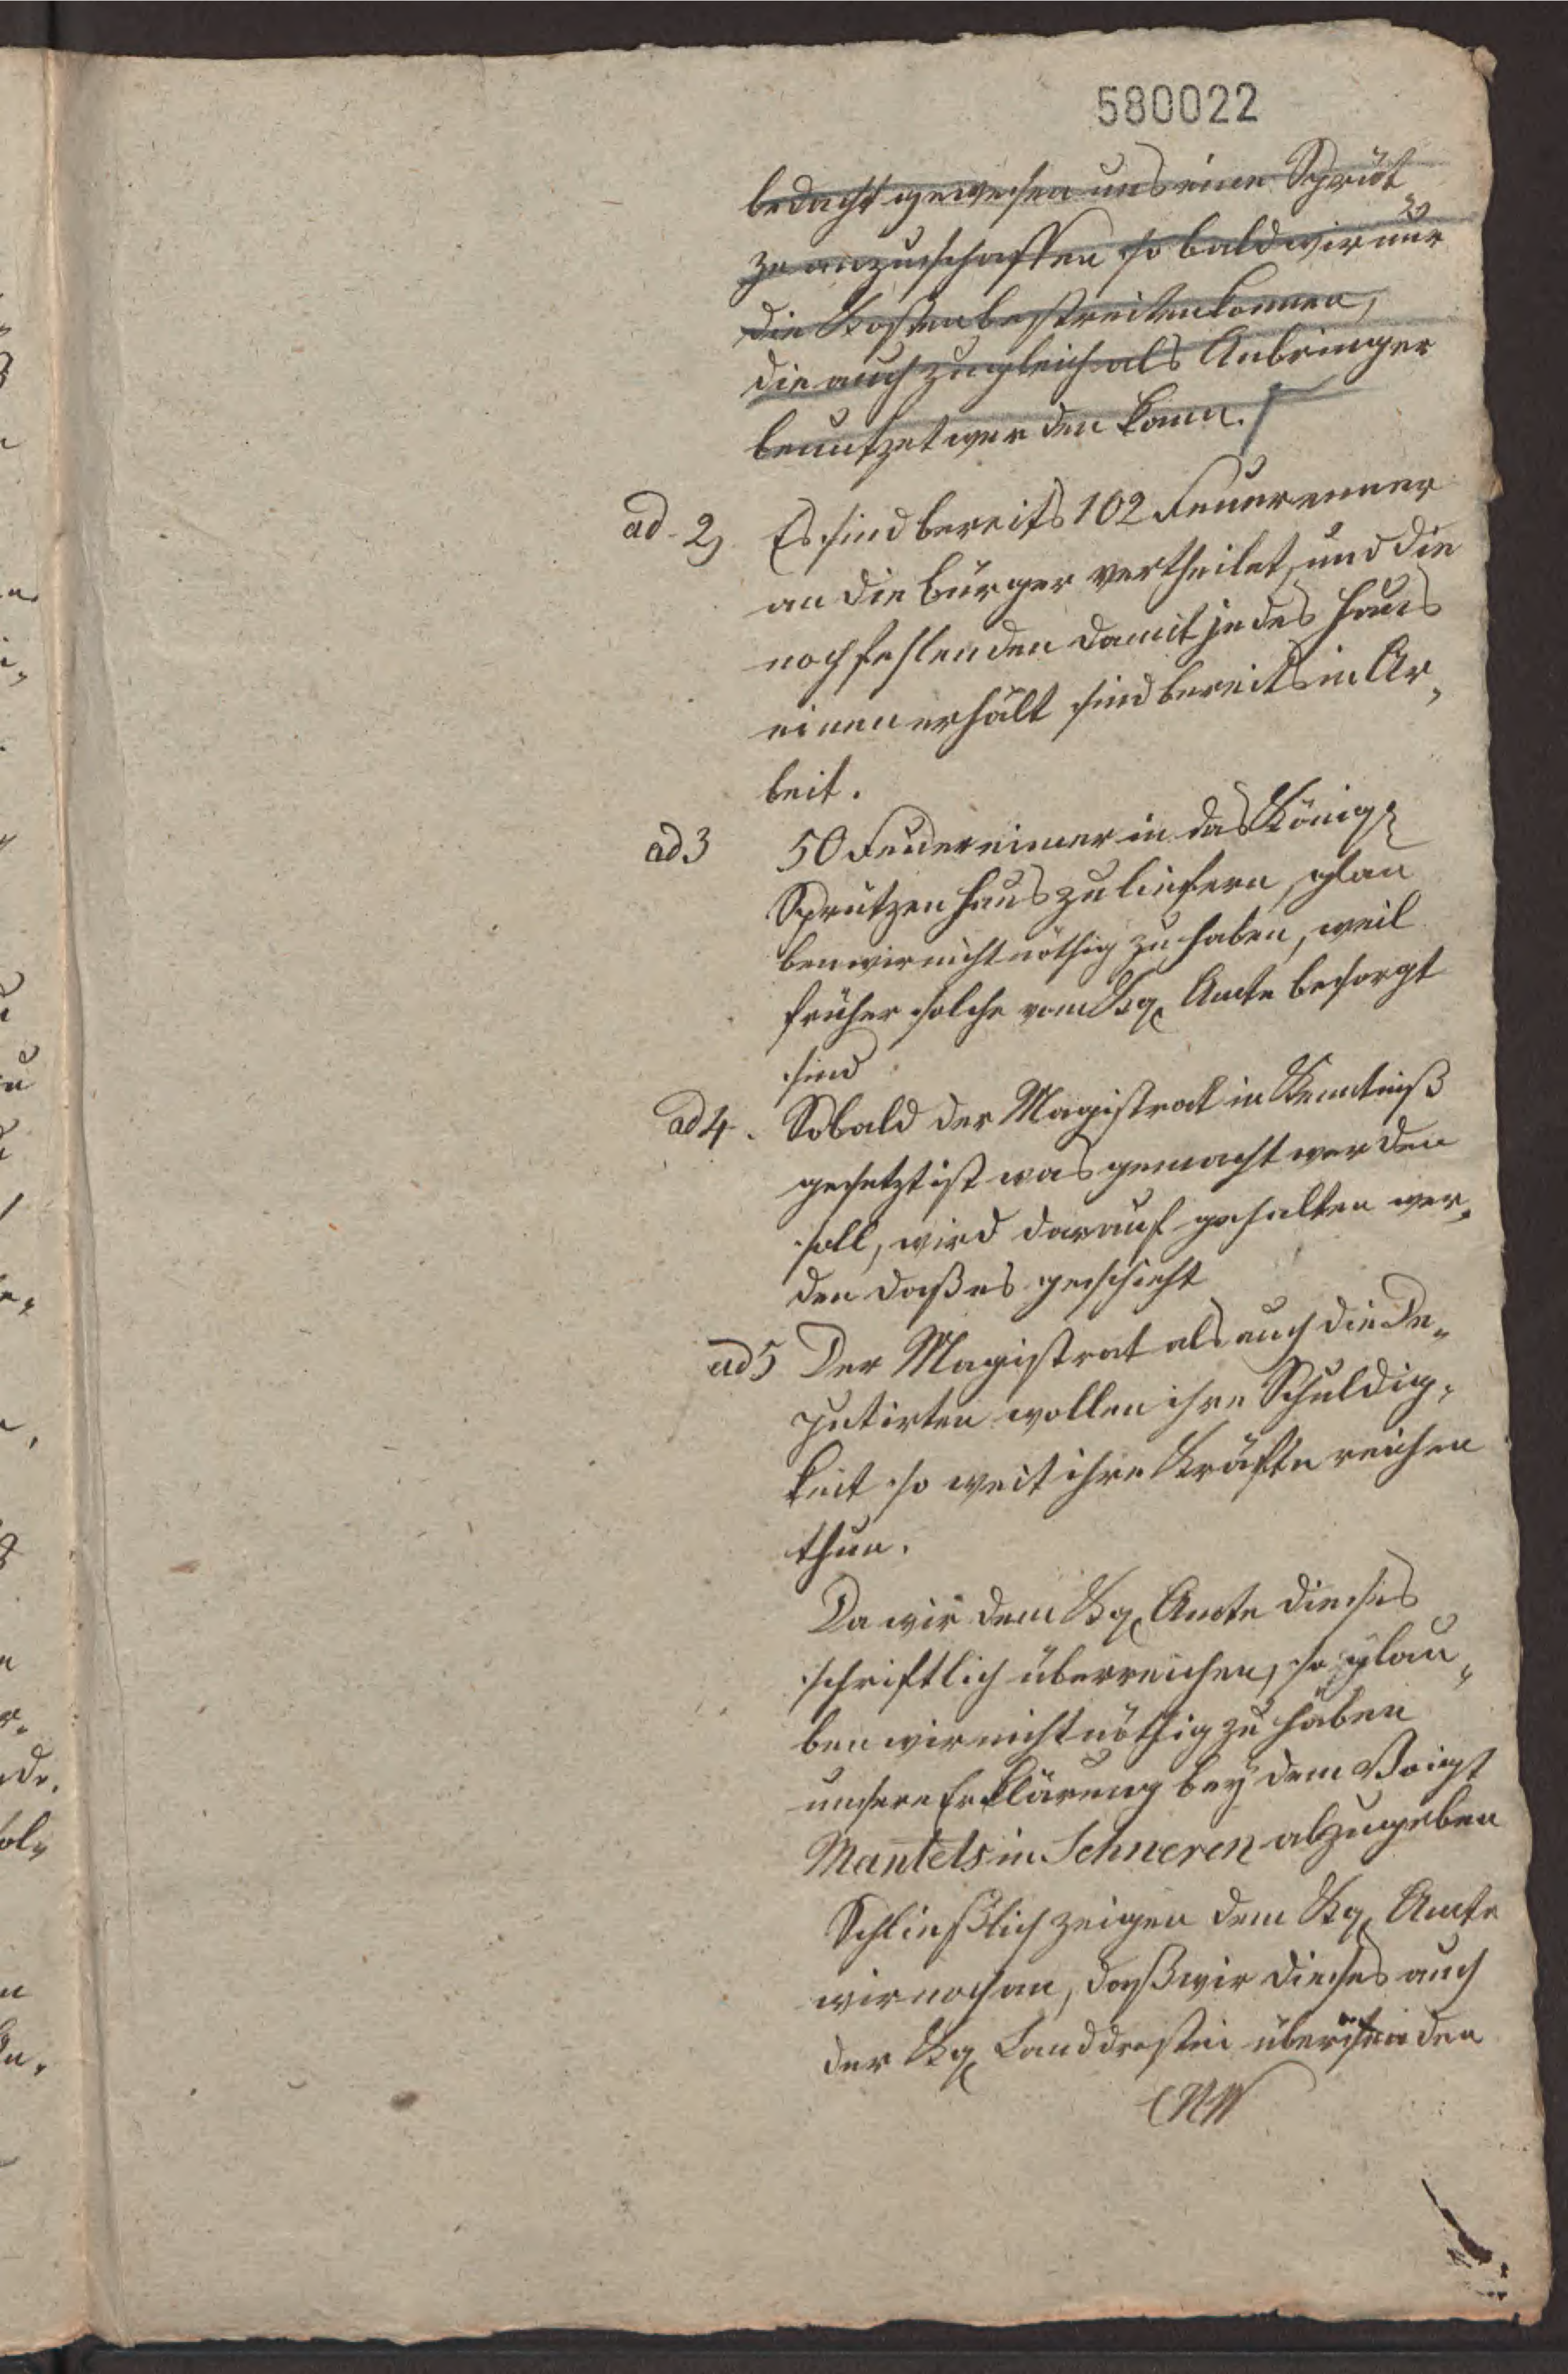 580022
bedacht gewesen uns eine Sprüt¬
ze anzuschaffen so bald wir nur
die Kosten bestreiten können,
die auch zugleich als Anbringer
benutzet werden kann.
ad 2, Es sind bereits 102 Feuereimer
an die bürger vertheilet, und die
noch fehlenden damit jedes Haus
einen erhält sind bereits in Ar„
beit.
ad 3 50 Feuereimer in das Königl
Sprützenhaus zu liefern, glau
ben wir nicht nöthig zu haben, weil
früher solche vom Kg. Amte besorgt
sind
ad 4. Sobald der Magistrat in Kenntniß
gesetzt ist was gemacht werden
soll, wird darauf gehalten wer„
den daß es geschieht
ad 5 Der Magistrat als auch die De„
putirten wollen ihre Schuldig„
keit so weit ihre Kräfte reichen
thun.
Da wir dem Kg. Amte dieses
schriftlich überreichen, so glau„
ben wir nicht nöthig zu haben
unsere Erklärung bey dem Voigt
Mantels in Schneren abzugeben
Schließlich zeigen dem Kg. Amte
wir noch an, daß wir dieses auch
der Kg. Landdrostei übersenden